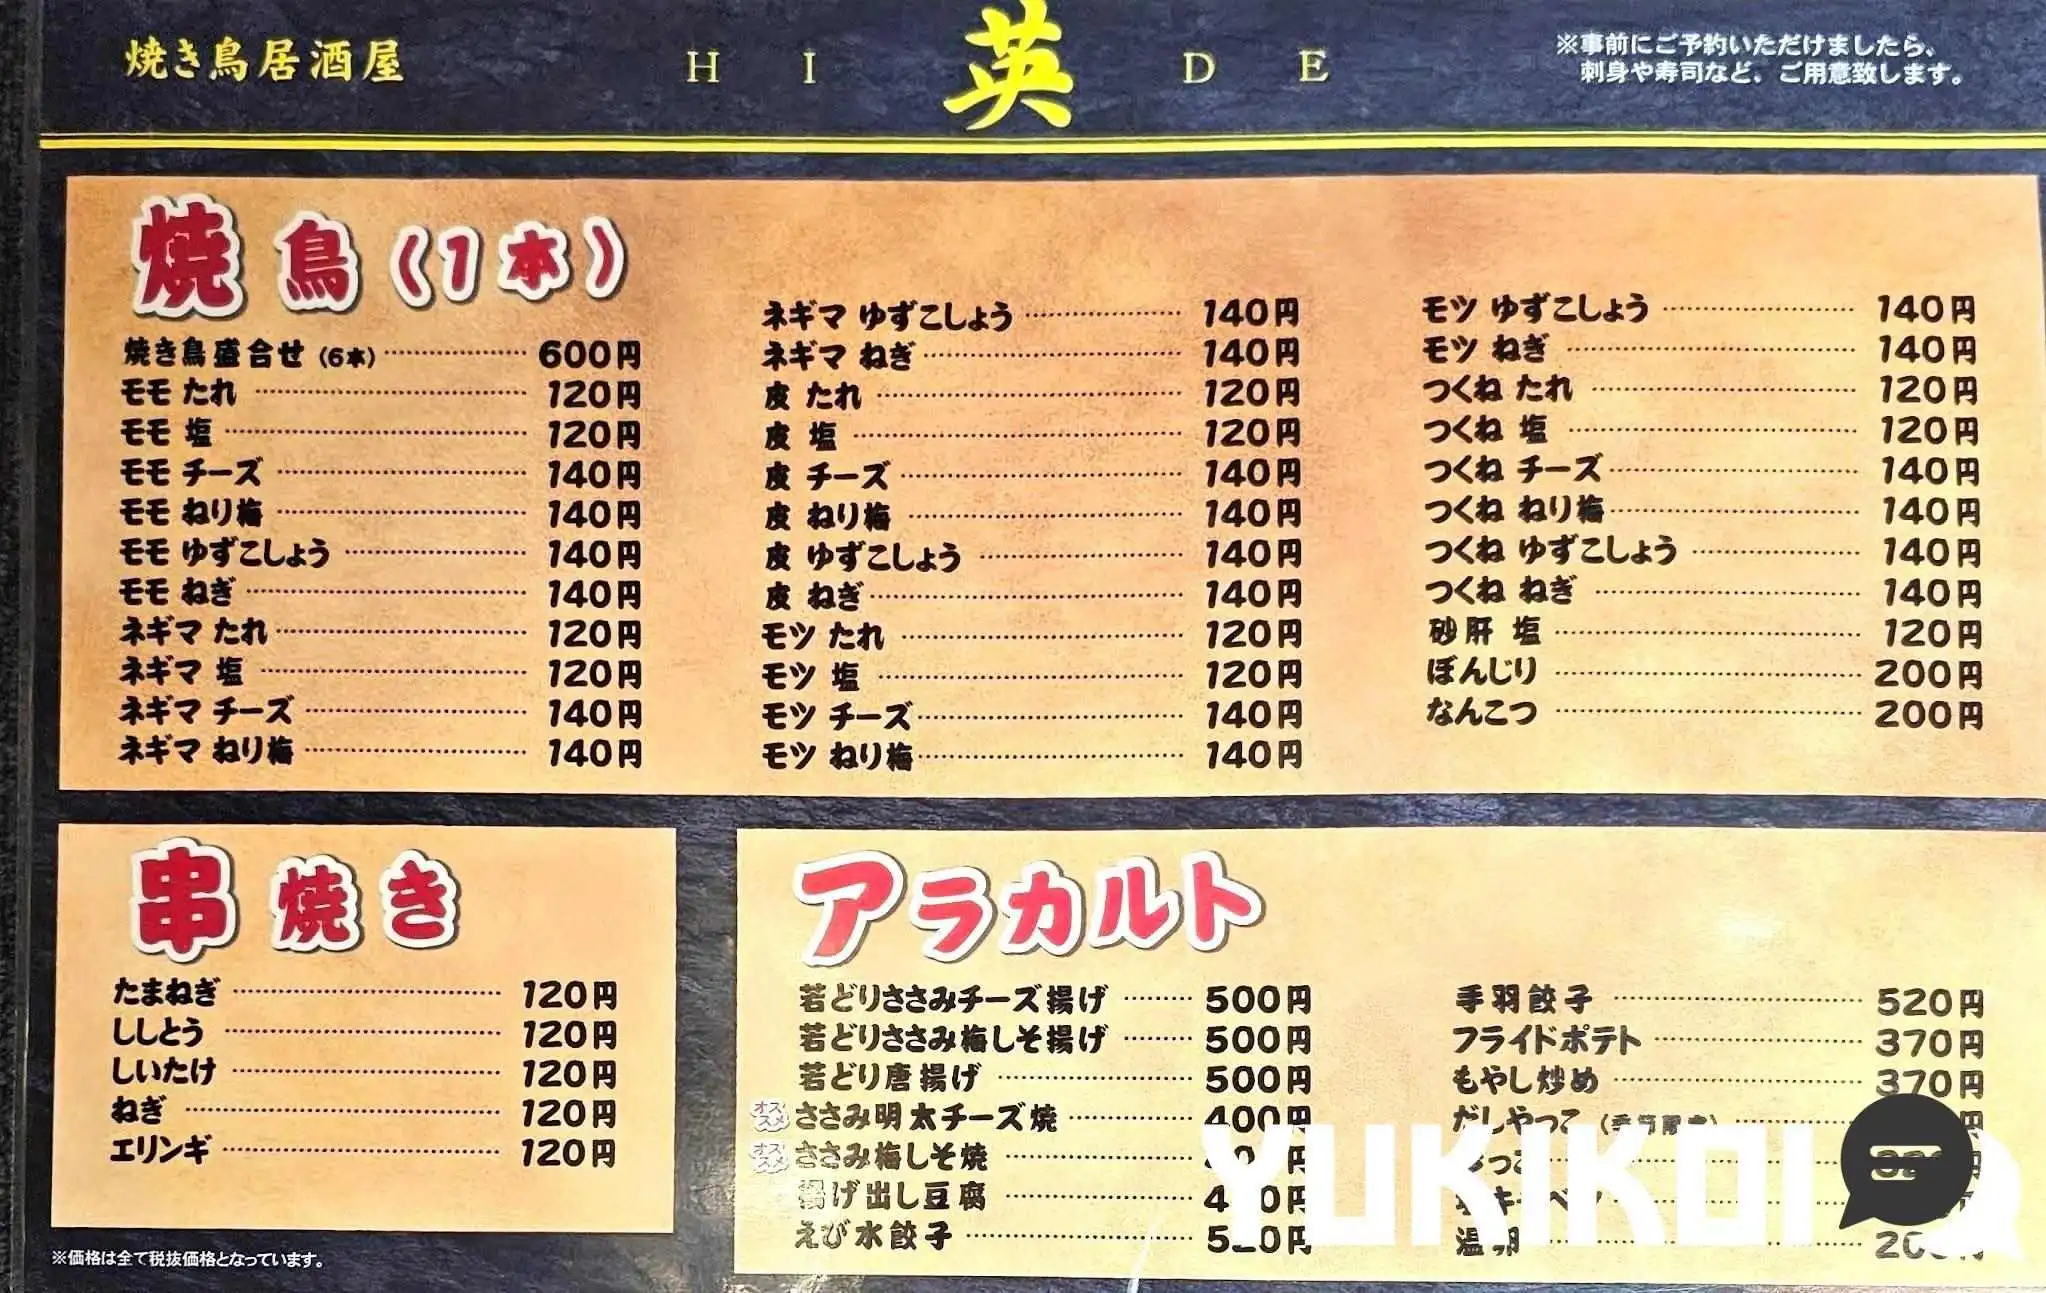 焼き鳥居酒屋
HI 英 DE
※事前にご予約いただけましたら、
刺身や寿司など、ご用意致します。
焼鳥(1本)
焼き鳥盛合せ (6本) 600円
モモ たれ 120円
モモ 塩 120円
モモ チーズ 140円
モモ ねり梅 140円
モモ ゆずこしょう 140円
モモ ねぎ 140円
ネギマ たれ 120円
ネギマ 塩 120円
ネギマ チーズ 140円
ネギマ ねり梅 140円
ネギマ ゆずこしょう 140円
ネギマ ねぎ 140円
皮 たれ 120円
皮 塩 120円
皮 チーズ 140円
皮 ねり梅 140円
皮 ゆずこしょう 140円
皮 ねぎ 140円
モツ たれ 120円
モツ 塩 120円
モツ チーズ 140円
モツ ねり梅 140円
モツ ゆずこしょう 140円
モツ ねぎ 140円
つくね たれ 120円
つくね 塩 120円
つくね チーズ 140円
つくね ねり梅 140円
つくね ゆずこしょう 140円
つくね ねぎ 140円
砂肝 塩 120円
ぼんじり 200円
なんこつ 200円
串焼き
たまねぎ 120円
ししとう 120円
しいたけ 120円
ねぎ 120円
エリンギ 120円
アラカルト
若どりささみチーズ揚げ 500円
若どりささみ梅しそ揚げ 500円
若どり唐揚げ 500円
オススメ ささみ明太チーズ焼 400円
オススメ ささみ梅しそ焼 円
揚げ出し豆腐 円
えび水餃子 円
手羽餃子 520円
フライドポテト 370円
もやし炒め 370円
だしやっこ 円
温卵
※価格は全て税抜価格となっています。
YUKIKOI